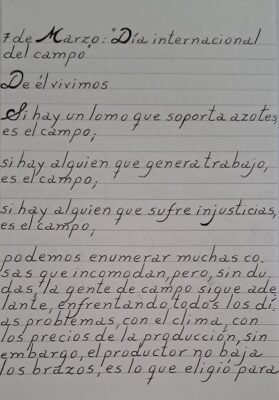 7 de Marzo: "Día internacional
del campo"
De él vivimos
Si hay un lomo que soporta azotes,
es el campo;
si hay alguien que genera trabajo,
es el campo;
si hay alguien que sufre injusticias,
es el campo;
podemos enumerar muchas co
sas que incomodan, pero, sin du
das, la gente de campo sigue ade
lante, enfrentando todos los dí
as problemas, con el clima, con
los precios de la producción, sin
embargo, el productor no baja
los brazos, es lo que eligió para